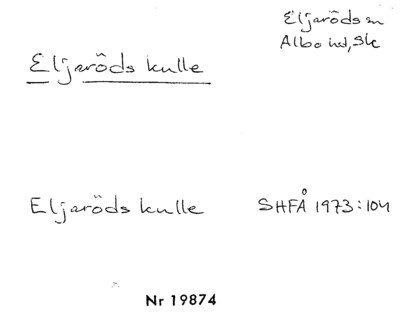 Eljaröds sn
Albo hd, Sk
Eljaröds kulle
Eljaröds kulle SHFÅ 1973:104
Nr 19874